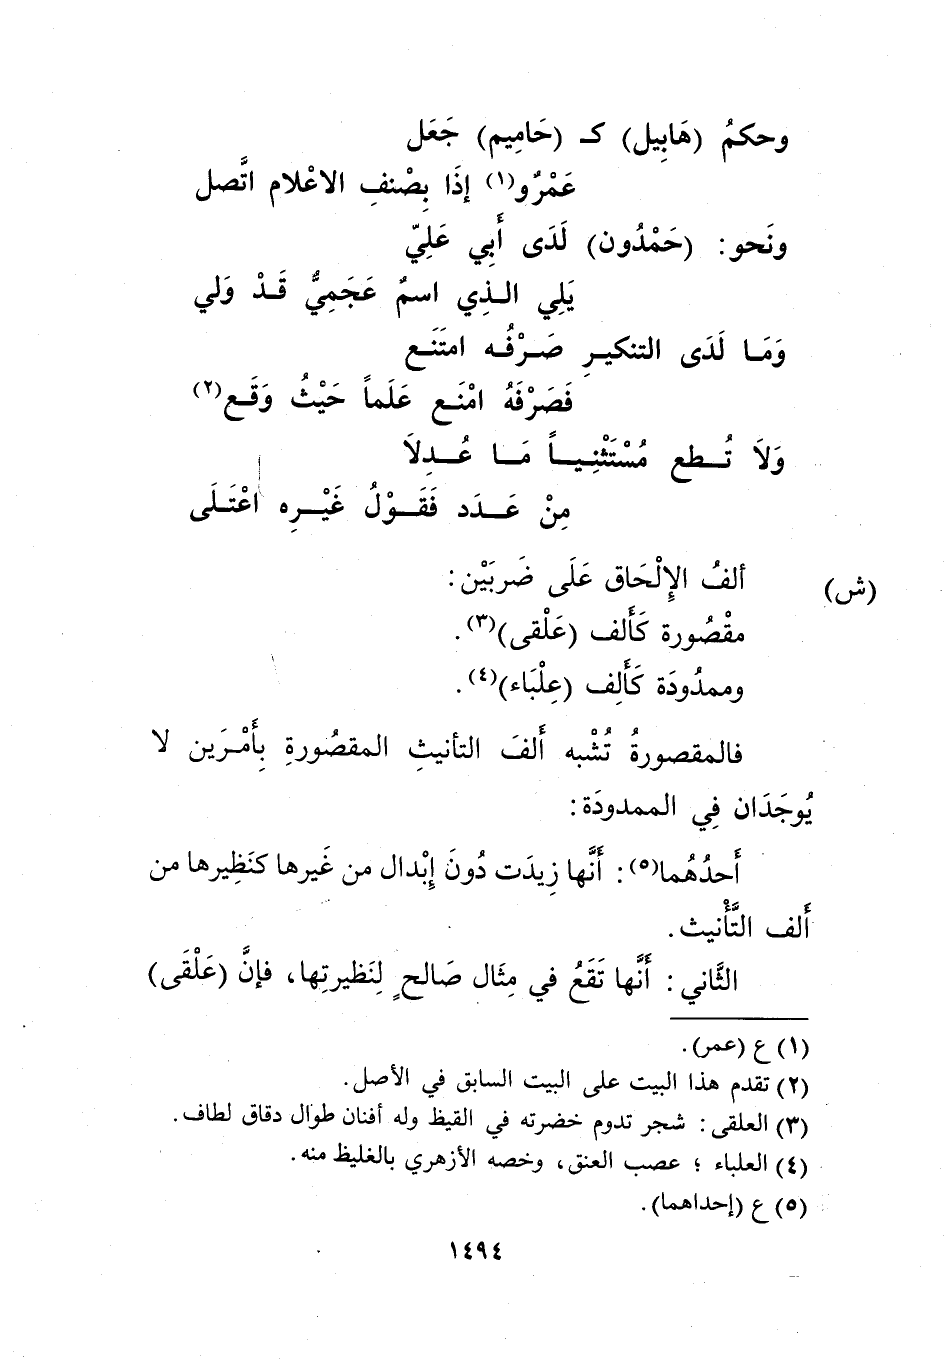 وحكمُ (هَابِيل) كـ (حَامِيم) جَعَل
عَمْرُو(١) إذَا بِصْنفِ الاعْلام اتَّصل
ونَحو: (حَمْدُون) لَدَى أَبِي عَلِيّ
يَلِي الـذِي اسمٌ عَجَمِيٌّ قَـدْ وَلي
وَمَـا لَدَى التنكيـرِ صَـرْفُـه امتَنَـع
فَصَرْفَهُ امْنَـع عَلَماً حَيْثُ وَقَـع(٢)
وَلاَ تُـطع مُسْتَثْنِيـاً مَـا عُـدِلاَ
مِنْ عَـدَد فَقَـوْلُ غَيْـرِه اعْتَـلَى
(ش) ألفُ الإِلْحَاق عَلَى ضَربَيْن:
مقْصُورة كَأَلف (عَلْقى)(٣).
وممدُودَة كَأَلِف (عِلْبَاء)(٤).
فالمقصورةُ تُشْبه أَلفَ التأنيثِ المقصُورةِ بِأَمْـرَين لا
يُوجَدَان فِي الممدودَة:
أَحدُهُما(٥): أَنَّها زِيدَت دُونَ إِبْدال من غَيرها كنَظِيرها من
أَلف التَّأْنيث.
الثَّاني: أَنَّها تَقَعُ في مِثَال صَالحٍ لِنَظيرتِها، فإنَّ (عَلْقَى)
(١) ع (عمر).
(٢) تقدم هذا البيت على البيت السابق في الأصل.
(٣) العلقى: شجر تدوم خضرته في القيظ وله أفنان طوال دقاق لطاف.
(٤) العلباء ؛ عصب العنق، وخصه الأزهري بالغليظ منه.
(٥) ع (إحداهما).
١٤٩٤